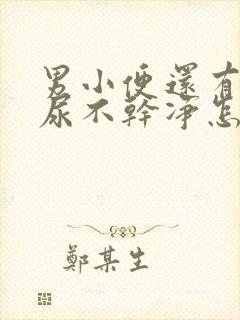 男小便還有
尿不幹淨怎
鄭某生